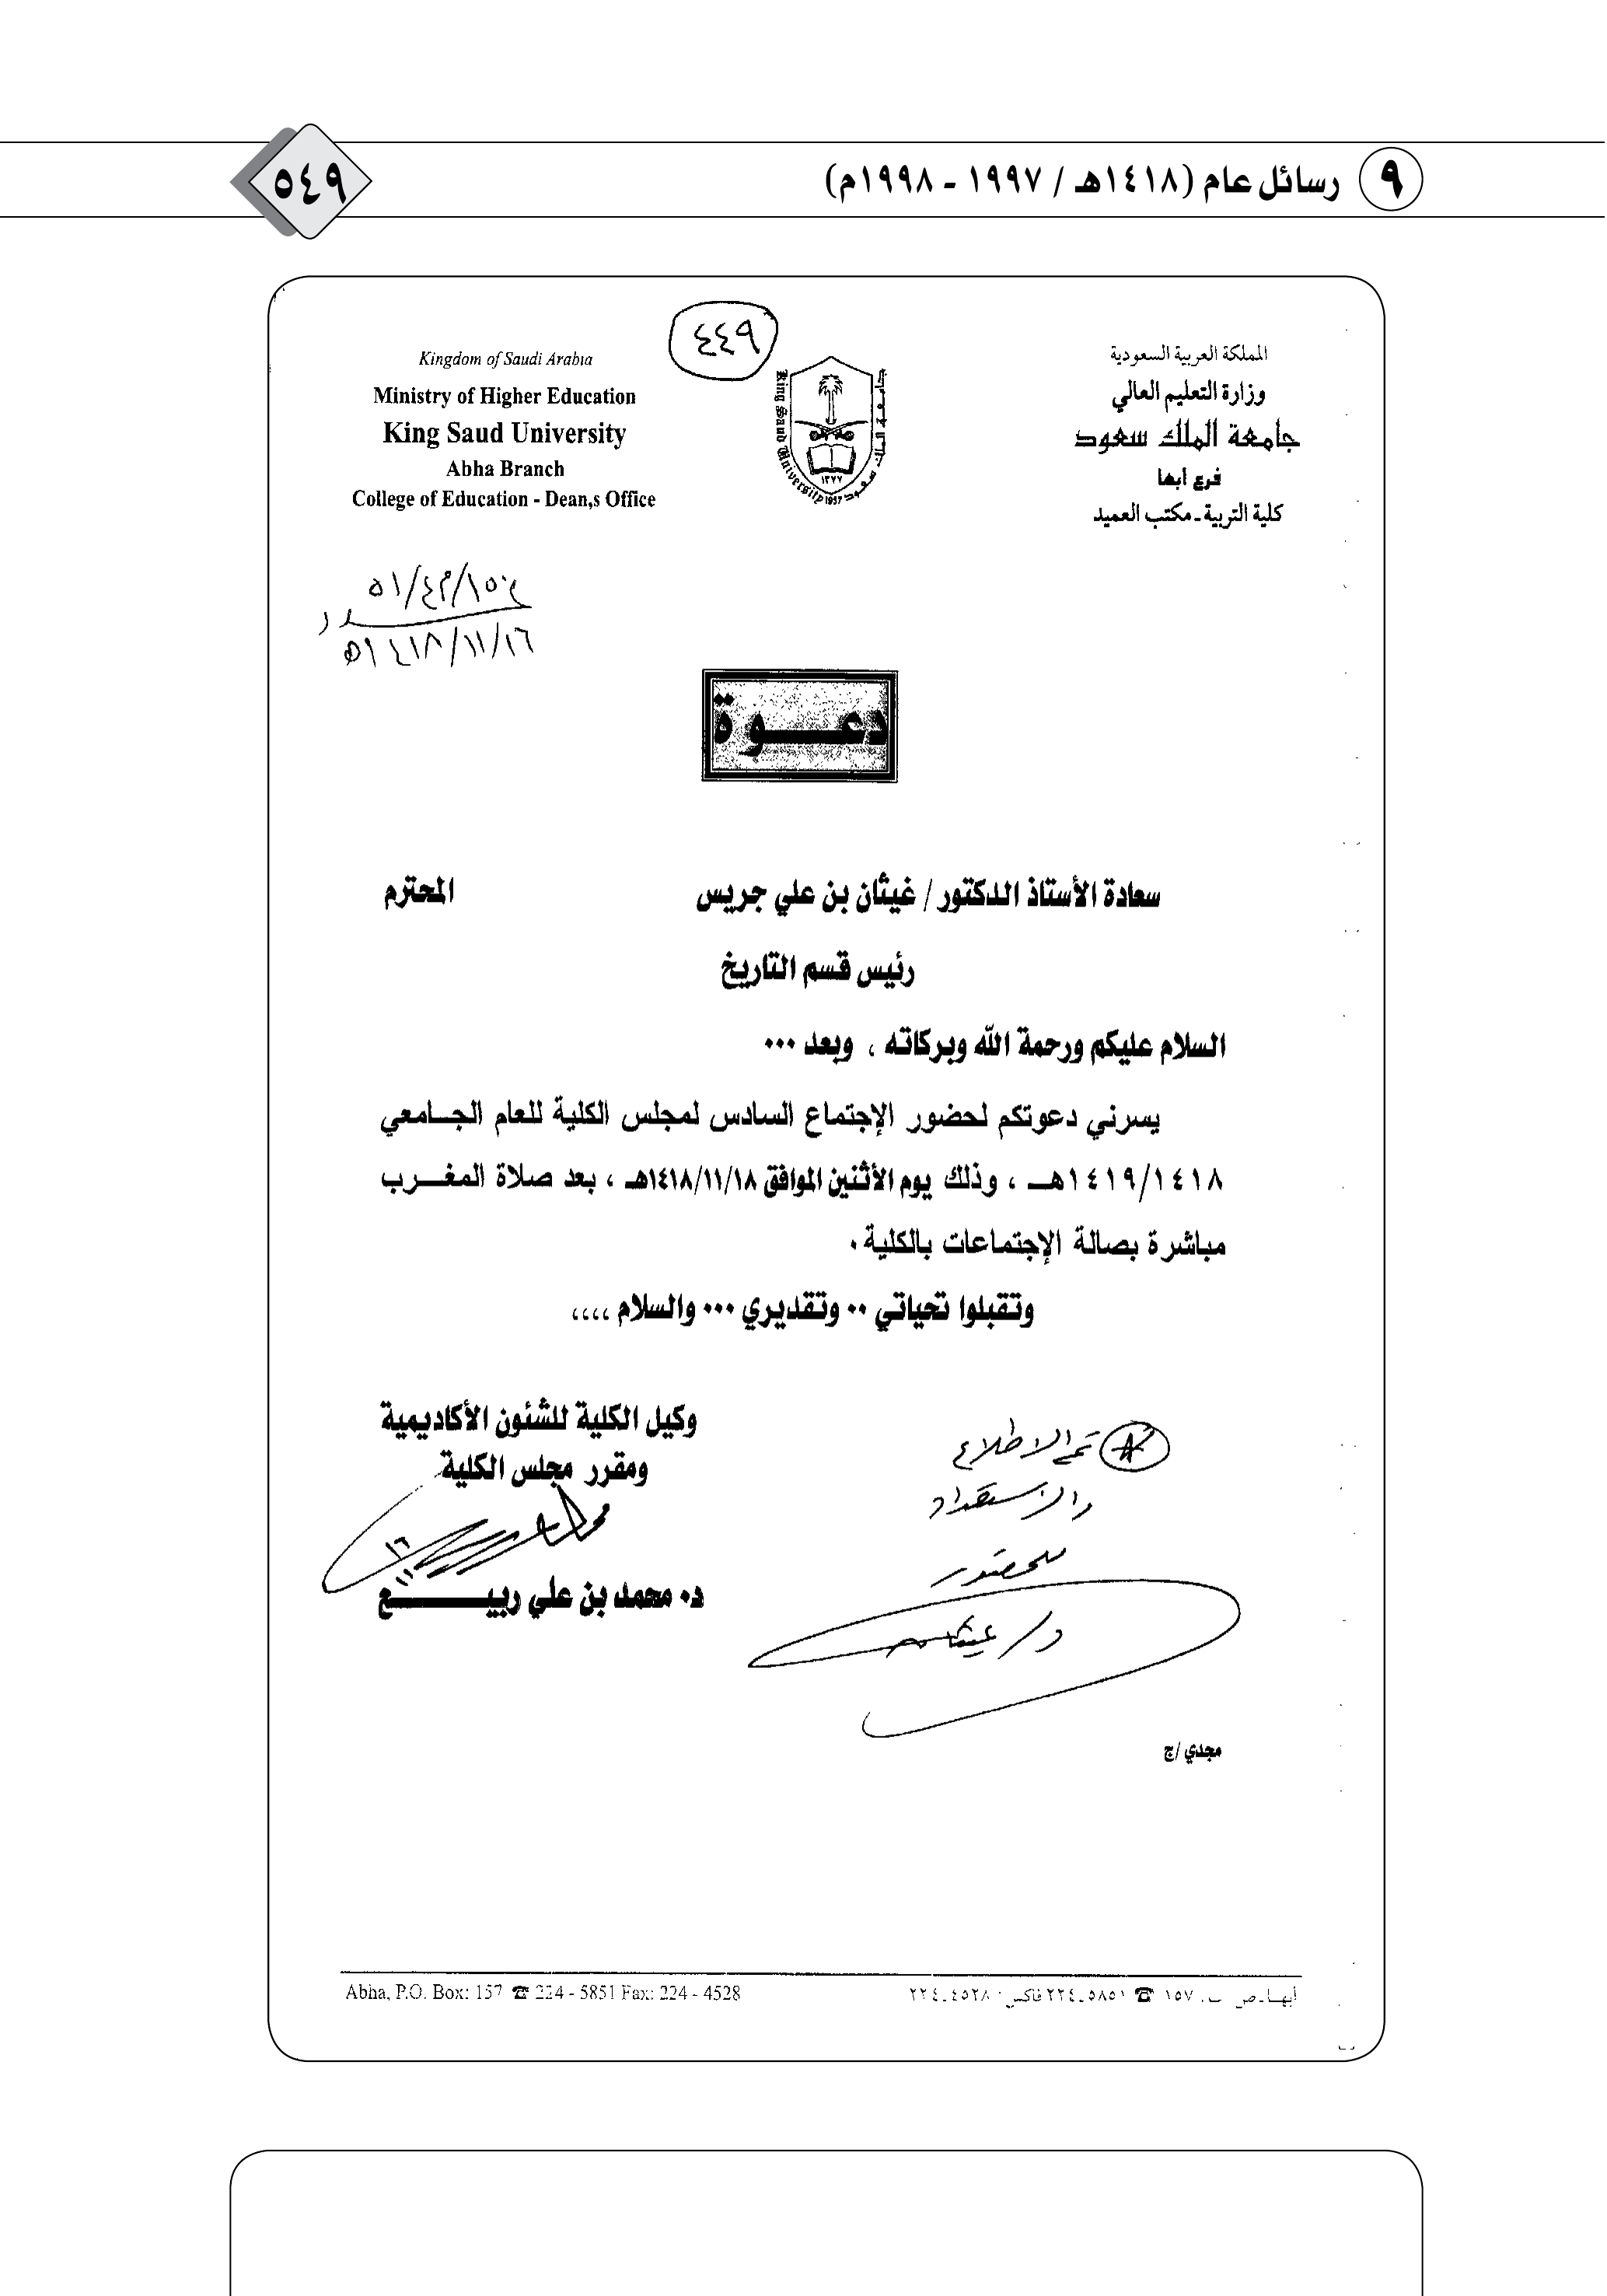 ٩ رسائل عام (١٤١٨هـ / ١٩٩٧ - ١٩٩٨م)
٥٤٩
٤٤٩
المملكة العربية السعودية
وزارة التعليم العالي
جامعة الملك سعود
فرع أبها
كلية التربية - مكتب العميد
Kingdom of Saudi Arabia
Ministry of Higher Education
King Saud University
Abha Branch
College of Education - Dean,s Office
King Saud University 1957
جامعة الملك سعود
١٣٧٧
١٤١٨/١١/١٦هـ
دعـــوة
سعادة الأستاذ الدكتور / غيثان بن علي جريس المحترم
رئيس قسم التاريخ
السلام عليكم ورحمة الله وبركاته ، وبعد ...
يسرني دعوتكم لحضور الإجتماع السادس لمجلس الكلية للعام الجـامعي
١٤١٩/١٤١٨هـ ، وذلك يوم الأثنين الموافق ١٤١٨/١١/١٨هـ ، بعد صلاة المغـرب
مباشرة بصالة الإجتماعات بالكلية .
وتقبلوا تحياتي .. وتقديري ... والسلام ،،،،
وكيل الكلية للشئون الأكاديمية
ومقرر مجلس الكلية
د. محمد بن علي ربيـــــع
تم الاطلاع
والاستعداد
للحضور
د/ غيثان
مجدي /ج
أبهـا - ص ب. ١٥٧ ☎ ٥٨٥١ - ٢٢٤ فاكس: ٤٥٢٨ - ٢٢٤
Abha, P.O. Box: 157 ☎ 224 - 5851 Fax: 224 - 4528